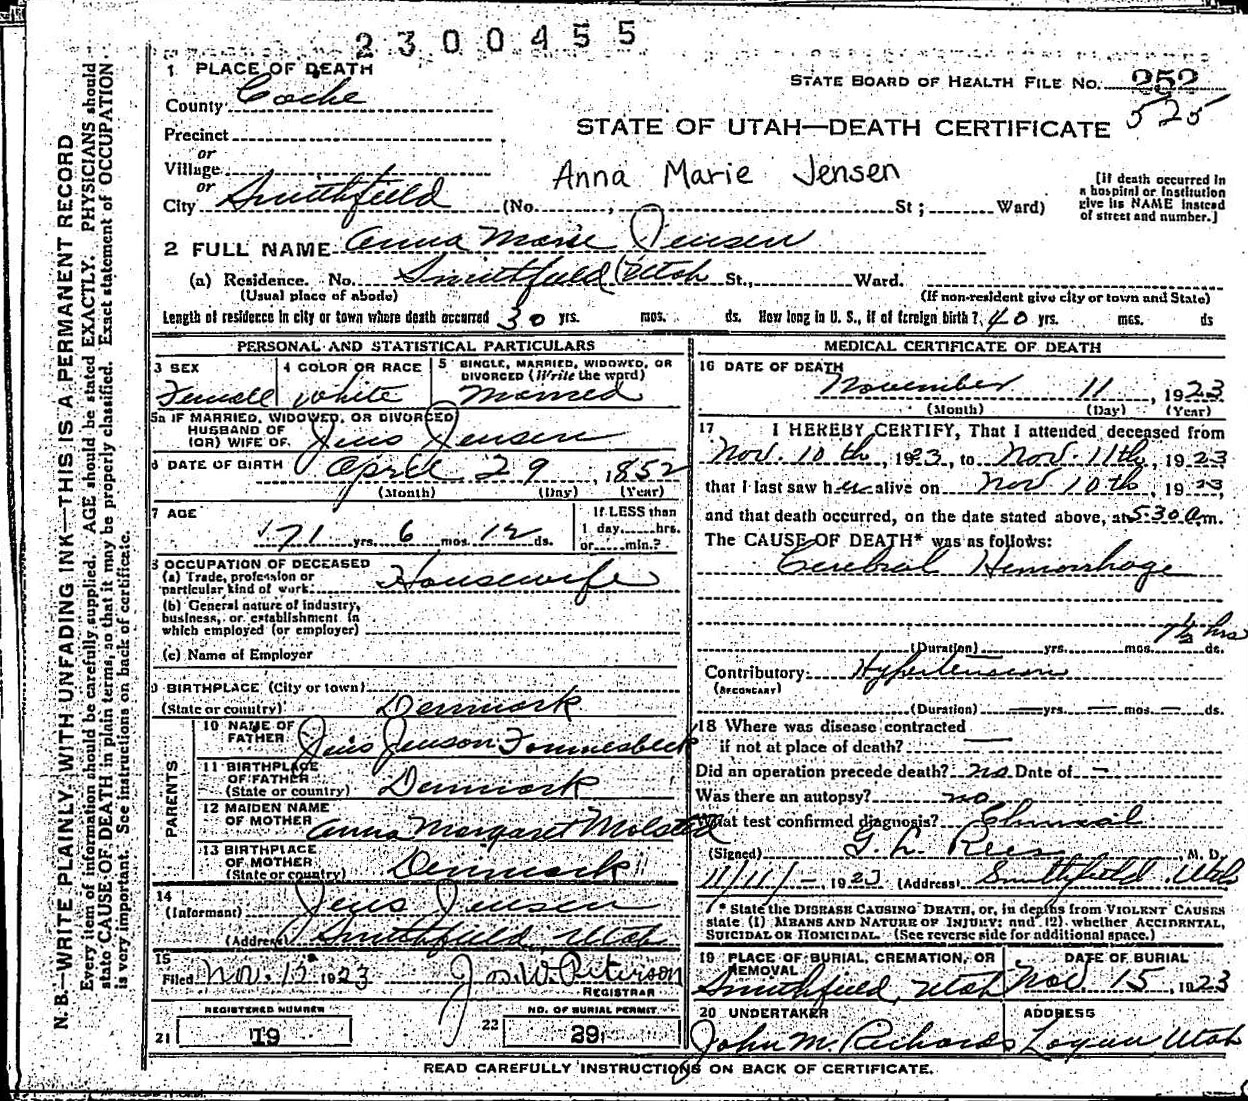 2300455
1 PLACE OF DEATH
STATE BOARD OF HEALTH FILE NO. 252
County Cache
525
Precinct
STATE OF UTAH—DEATH CERTIFICATE
or
Village
Anna Marie Jensen
or
City Smithfield (No. , St ; Ward)
[If death occurred in
a hospital or institution
give its NAME instead
of street and number.]
2 FULL NAME Anna Marie Jensen
(a) Residence. No. Smithfield Utah St., Ward.
(Usual place of abode) (If non-resident give city or town and State)
Length of residence in city or town where death occurred 30 yrs. mos. ds. How long in U. S., if of foreign birth? 40 yrs. mos. ds
PERSONAL AND STATISTICAL PARTICULARS
3 SEX
Female
4 COLOR OR RACE
White
5 SINGLE, MARRIED, WIDOWED, OR
DIVORCED (Write the word)
Married
5a IF MARRIED, WIDOWED, OR DIVORCED
HUSBAND OF
(OR) WIFE OF. Jens Jensen
6 DATE OF BIRTH April 29, 1852
(Month) (Day) (Year)
7 AGE
71 yrs. 6 mos. 12 ds.
If LESS than
1 day......hrs.
or......min.?
8 OCCUPATION OF DECEASED
(a) Trade, profession or
particular kind of work Housewife
(b) General nature of industry,
business, or establishment in
which employed (or employer)
(c) Name of Employer
9 BIRTHPLACE (City or town)
(State or country) Denmark
PARENTS
10 NAME OF
FATHER Jens Jenson Fonnesbeck
11 BIRTHPLACE
OF FATHER
(State or country) Denmark
12 MAIDEN NAME
OF MOTHER Anna Margaret Molsted
13 BIRTHPLACE
OF MOTHER
(State or country) Denmark
14
(Informant) Jens Jensen
(Address) Smithfield Utah
15
Filed Nov. 15 1923 Jos. W. Peterson
REGISTRAR
REGISTERED NUMBER
21 19
NO. OF BURIAL PERMIT
22 29
MEDICAL CERTIFICATE OF DEATH
16 DATE OF DEATH
November 11, 1923
(Month) (Day) (Year)
17 I HEREBY CERTIFY, That I attended deceased from
Nov. 10th, 1923, to Nov. 11th, 1923
that I last saw her alive on Nov 10th, 1923,
and that death occurred, on the date stated above, at 5:30 a.m.
The CAUSE OF DEATH* was as follows:
Cerebral Hemorrhage
7½ hrs
(Duration) yrs. mos. ds.
Contributory: Hypertension
(SECONDARY)
(Duration) — yrs. — mos. — ds.
18 Where was disease contracted
if not at place of death? —
Did an operation precede death? no Date of —
Was there an autopsy? no
What test confirmed diagnosis? Clinical
(Signed) G. L. Rees M. D.
11/11/-, 1923 (Address) Smithfield Utah
* State the DISEASE CAUSING DEATH, or, in deaths from VIOLENT CAUSES
state (1) MEANS AND NATURE OF INJURY; and (2), whether ACCIDENTAL,
SUICIDAL OR HOMICIDAL. (See reverse side for additional space.)
19 PLACE OF BURIAL, CREMATION, OR
REMOVAL
Smithfield, Utah
DATE OF BURIAL
Nov. 15, 1923
20 UNDERTAKER
John M. Richards
ADDRESS
Logan, Utah
READ CAREFULLY INSTRUCTIONS ON BACK OF CERTIFICATE.
N. B.—WRITE PLAINLY, WITH UNFADING INK—THIS IS A PERMANENT RECORD
Every item of information should be carefully supplied. AGE should be stated EXACTLY. PHYSICIANS should
state CAUSE OF DEATH in plain terms, so that it may be properly classified. Exact statement of OCCUPATION
is very important. See instructions on back of certificate.